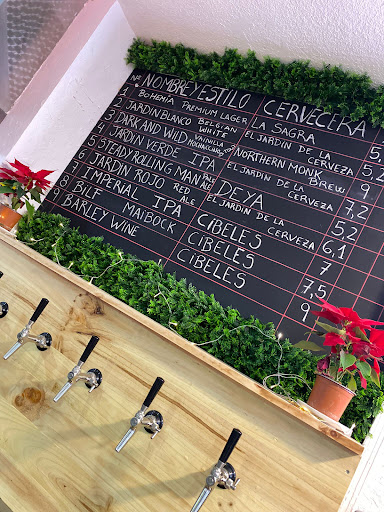 Nº NOMBRE Y ESTILO CERVECERA
1 BOHEMIA PREMIUM LAGER LA SAGRA 5,
2 JARDIN BLANCO BELGIAN WHITE EL JARDIN DE LA CERVEZA 5,2
3 DARK AND WILD VAINILLA NORTHERN MONK BREW 9
4 JARDIN VERDE IPA EL JARDIN DE LA CERVEZA 7,2
5 STEADY ROLLING MAN PALE ALE DEYA 5,2
6 JARDIN ROJO RED ALE EL JARDIN DE LA CERVEZA 6,1
7 IMPERIAL IPA CIBELES 7
8 BILF MAIBOCK CIBELES 7,5
BARLEY WINE CIBELES 9